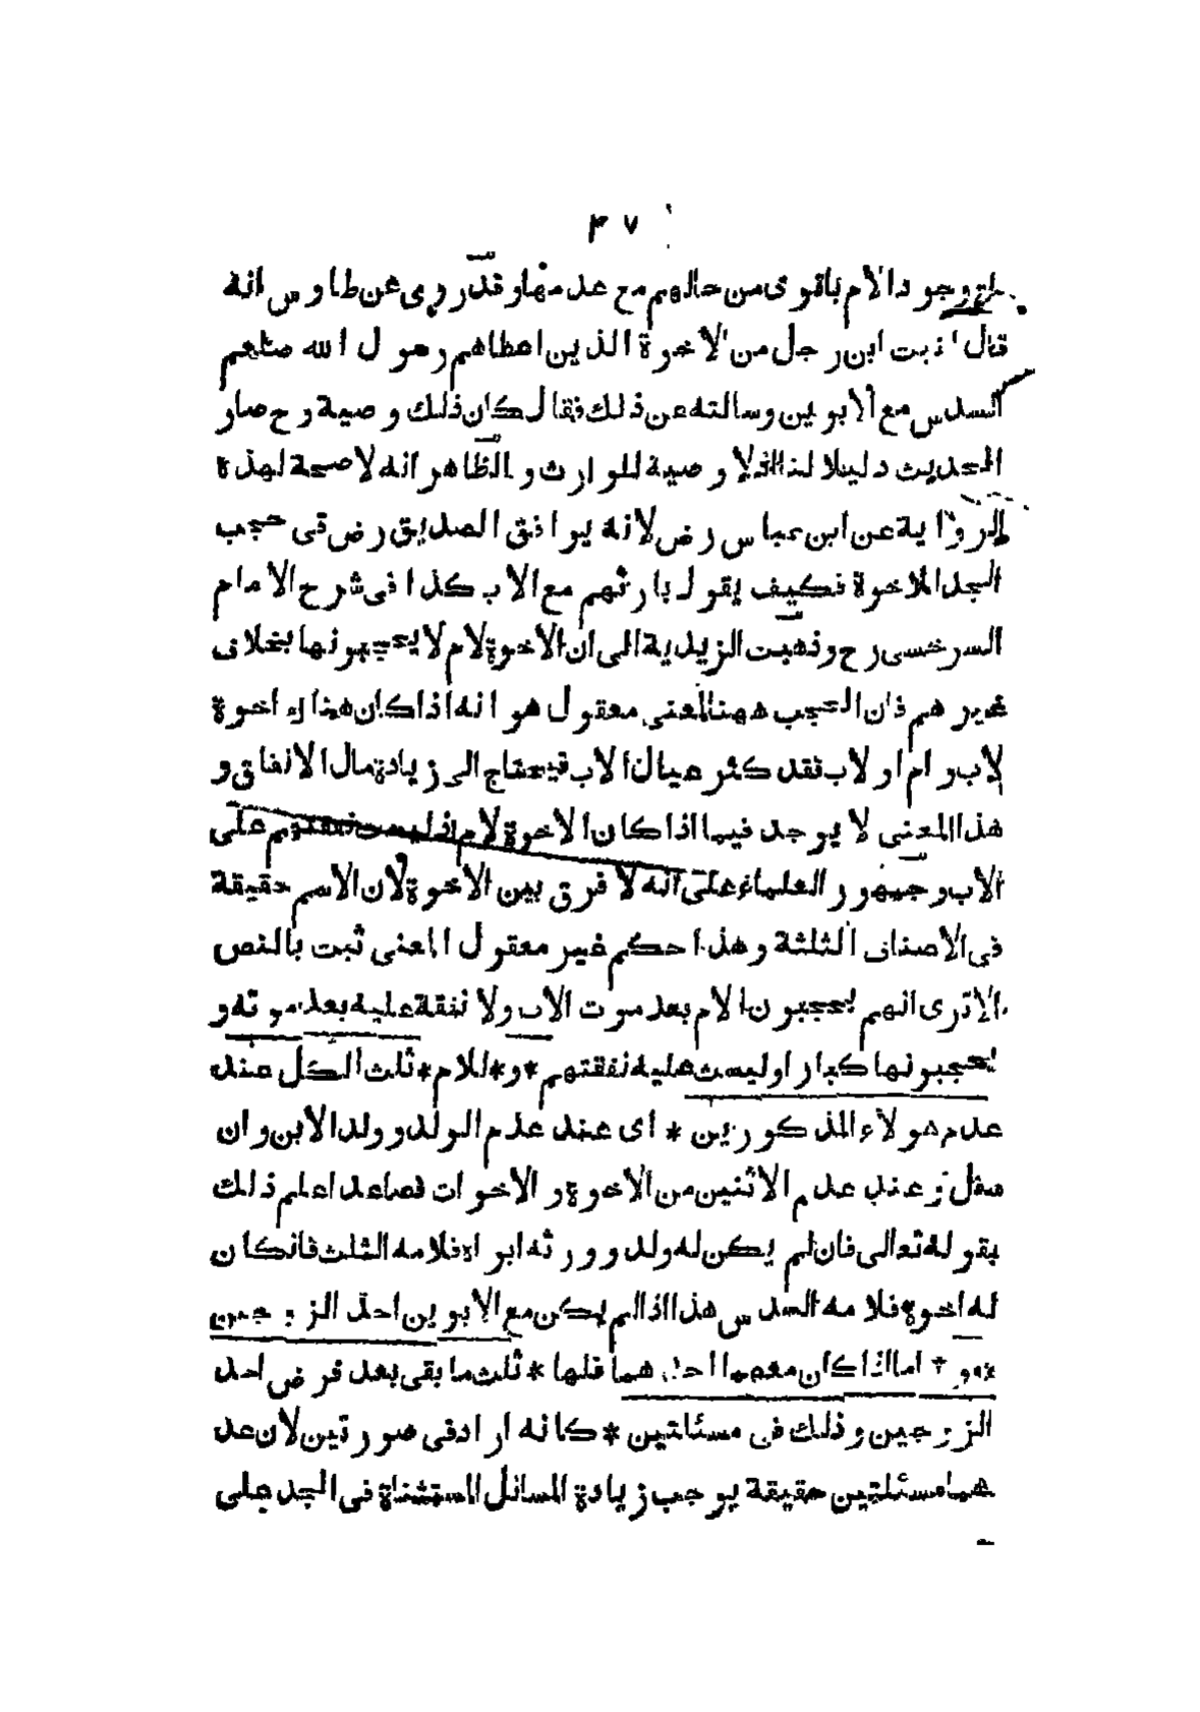 ٣٧
مع وجود الام باقوى من حالهم مع عدمها وقد روى عن طاوس انه
قال لقيت ابن رجل من الاخوة الذين اعطاهم رسول الله صلعم
السدس مع الابوين وسالته عن ذلك فقال كان ذلك وصية وح صار
الحديث دليلا لنا اذ لا وصية للوارث و الظاهر انه لا صحة لهذه
الرواية عن ابن عباس رض لانه يوافق الصديق رض فى حجب
الجد للاخوة فكيف يقول بارثهم مع الاب كذا فى شرح الامام
السرخسى رح وذهبت الزيدية الى ان الاخوة لام لا يحجبونها بخلاف
غيرهم فان الحجب ههنا لمعنى معقول هو انه اذا كان هناك اخوة
لاب وام او لاب فقد كثر عيال الاب فيحتاج الى زيادة مال الانفاق و
هذا المعنى لا يوجد فيما اذا كان الاخوة لام اذ ليست نفقتهم على
الاب وجمهور العلماء على انه لا فرق بين الاخوة لان الاسم حقيقة
فى الاصناف الثلثة وهذا حكم غير معقول المعنى ثبت بالنص
الا ترى انهم يحجبون الام بعد موت الاب ولا نفقة عليه بعد موته و
يحجبونها كبارا وليست عليه نفقتهم * و * للام * ثلث الكل عند
عدم هولاء المذكورين * اى عند عدم الولد وولد الابن وان
سفل و عند عدم الاثنين من الاخوة و الاخوات فصاعدا علم ذلك
بقوله تعالى فان لم يكن له ولد وورثه ابواه فلامه الثلث فان كان
له اخوة فلامه السدس هذا اذا لم يكن مع الابوين احد الزوجين
و * اما اذا كان معهما احدهما فلها * ثلث ما بقى بعد فرض احد
الزوجين وذلك فى مسئلتين * كانه اراد فى صورتين لان عد
هما مسئلتين حقيقة يوجب زيادة المسائل المستثناة فى الجد على